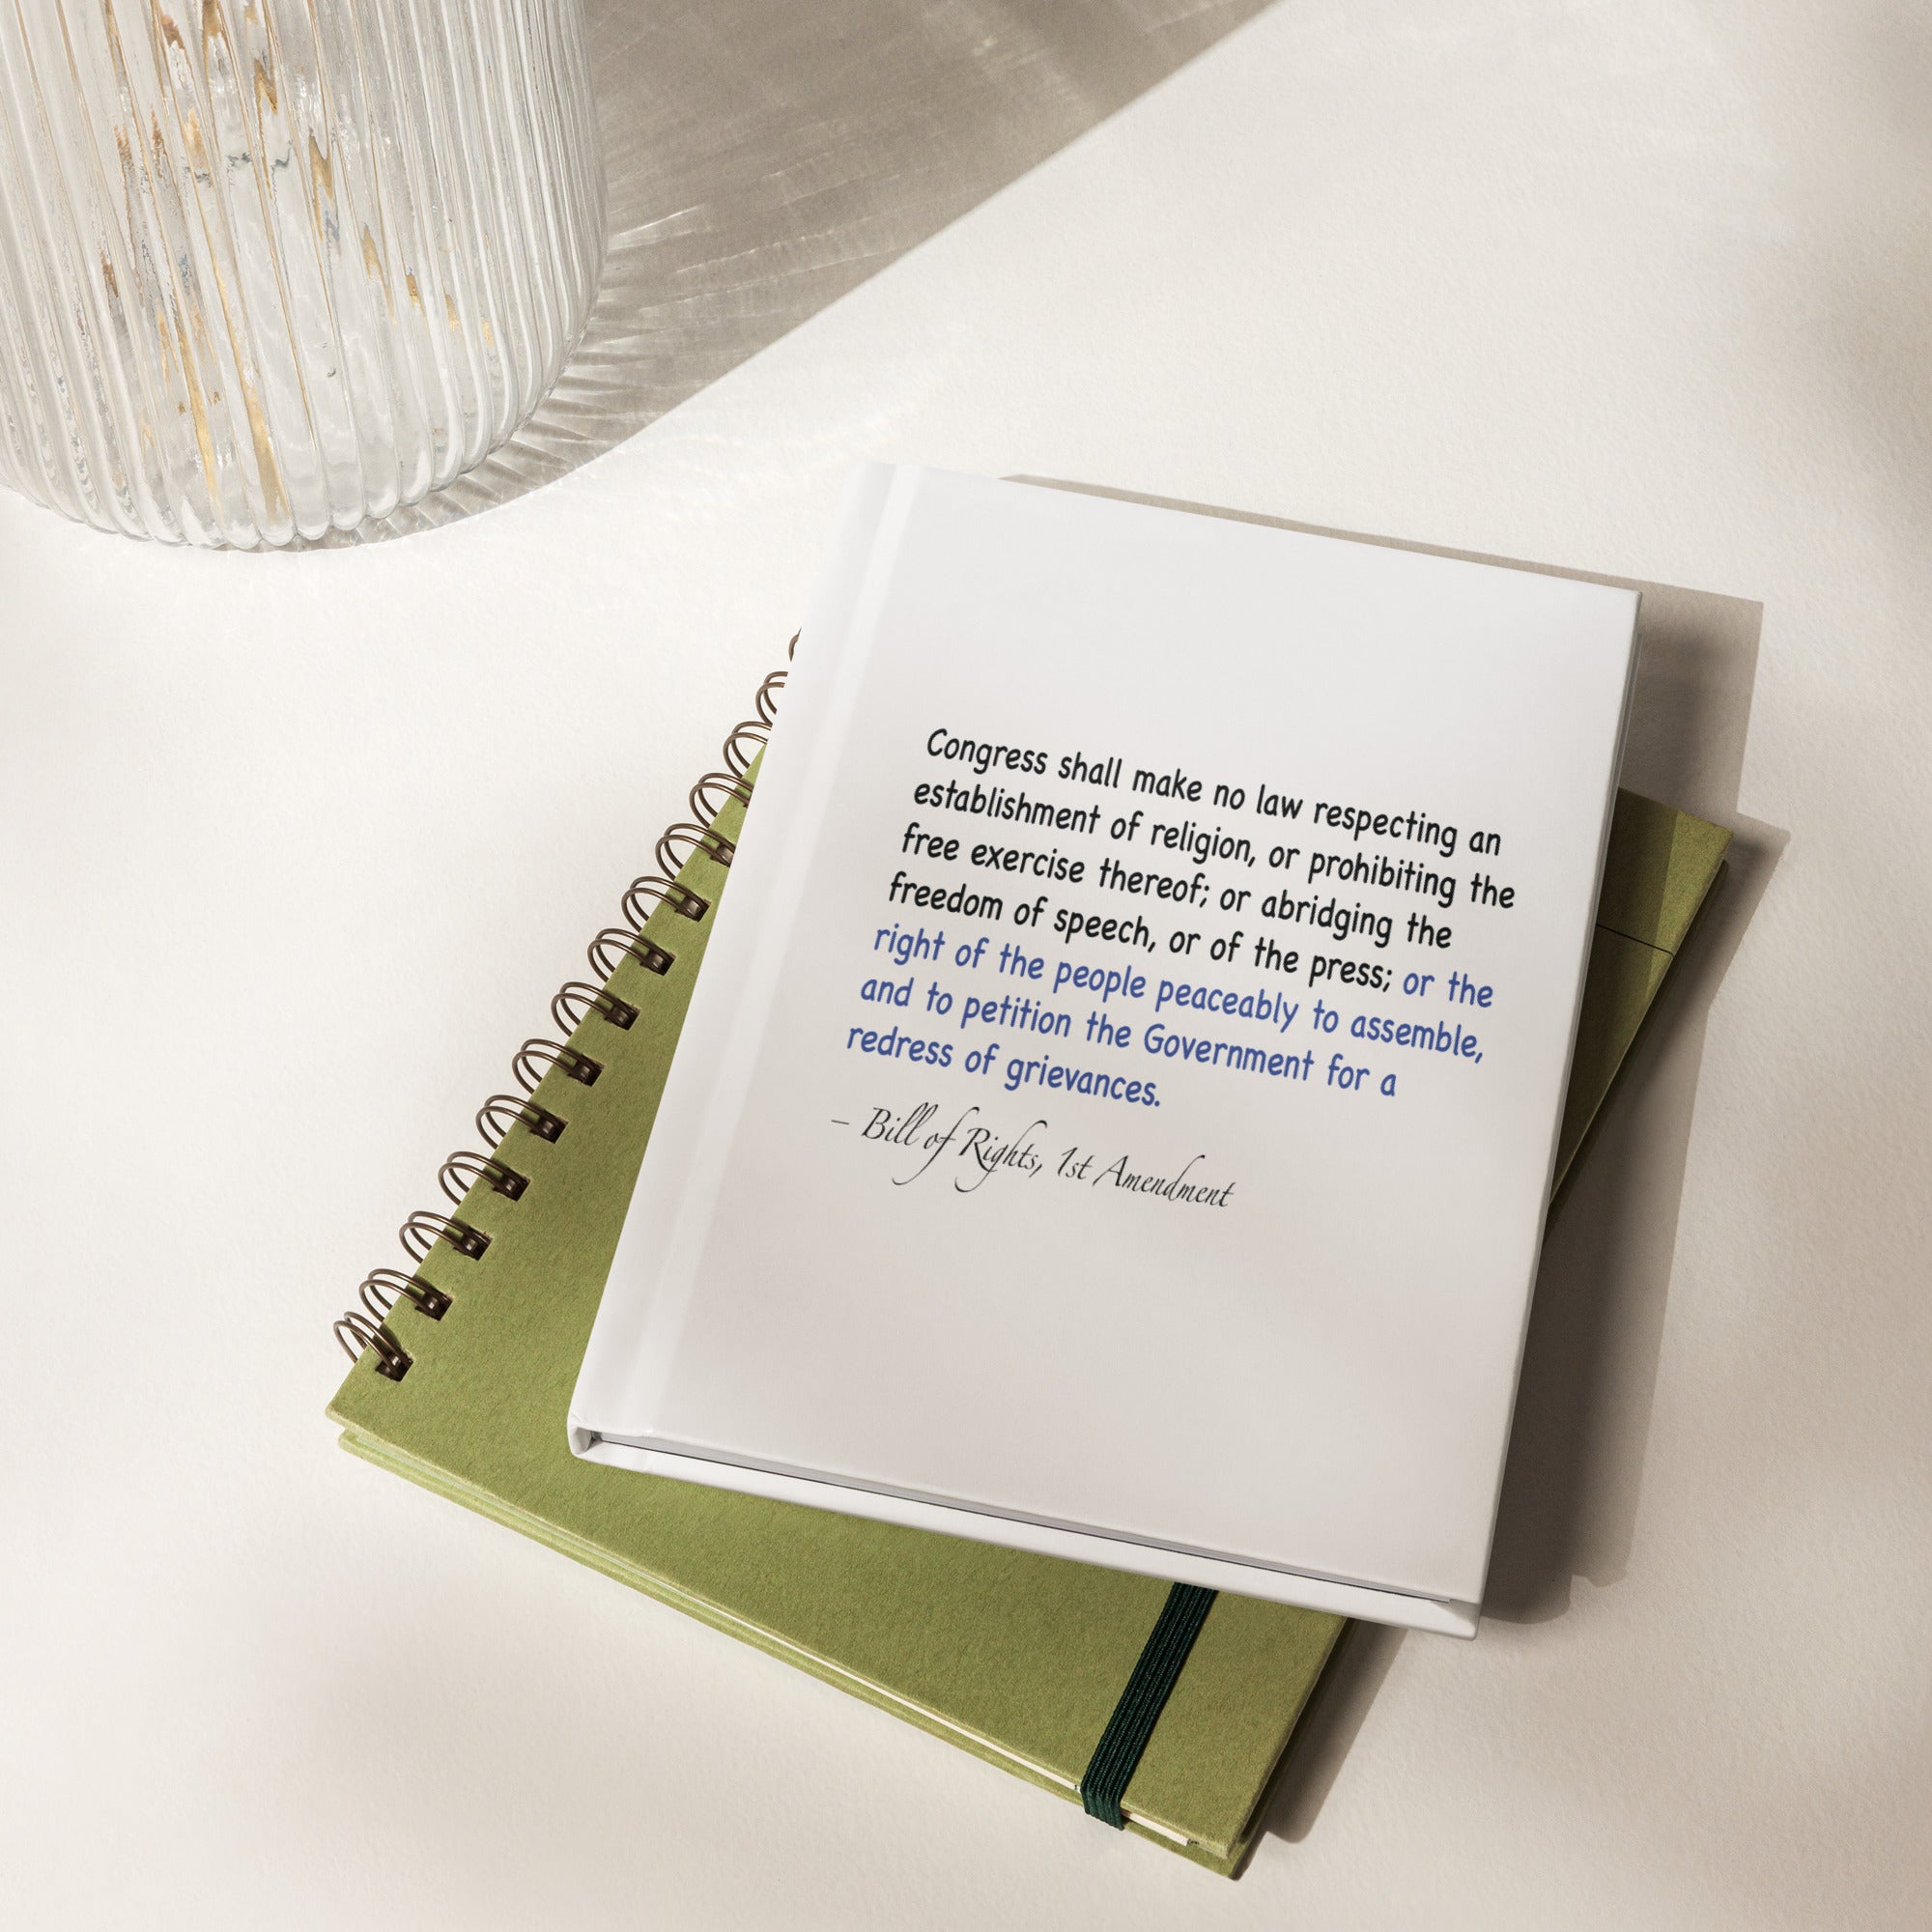 Congress shall make no law respecting an
establishment of religion, or prohibiting the
free exercise thereof; or abridging the
freedom of speech, or of the press; or the
right of the people peaceably to assemble,
and to petition the Government for a
redress of grievances.
– Bill of Rights, 1st Amendment